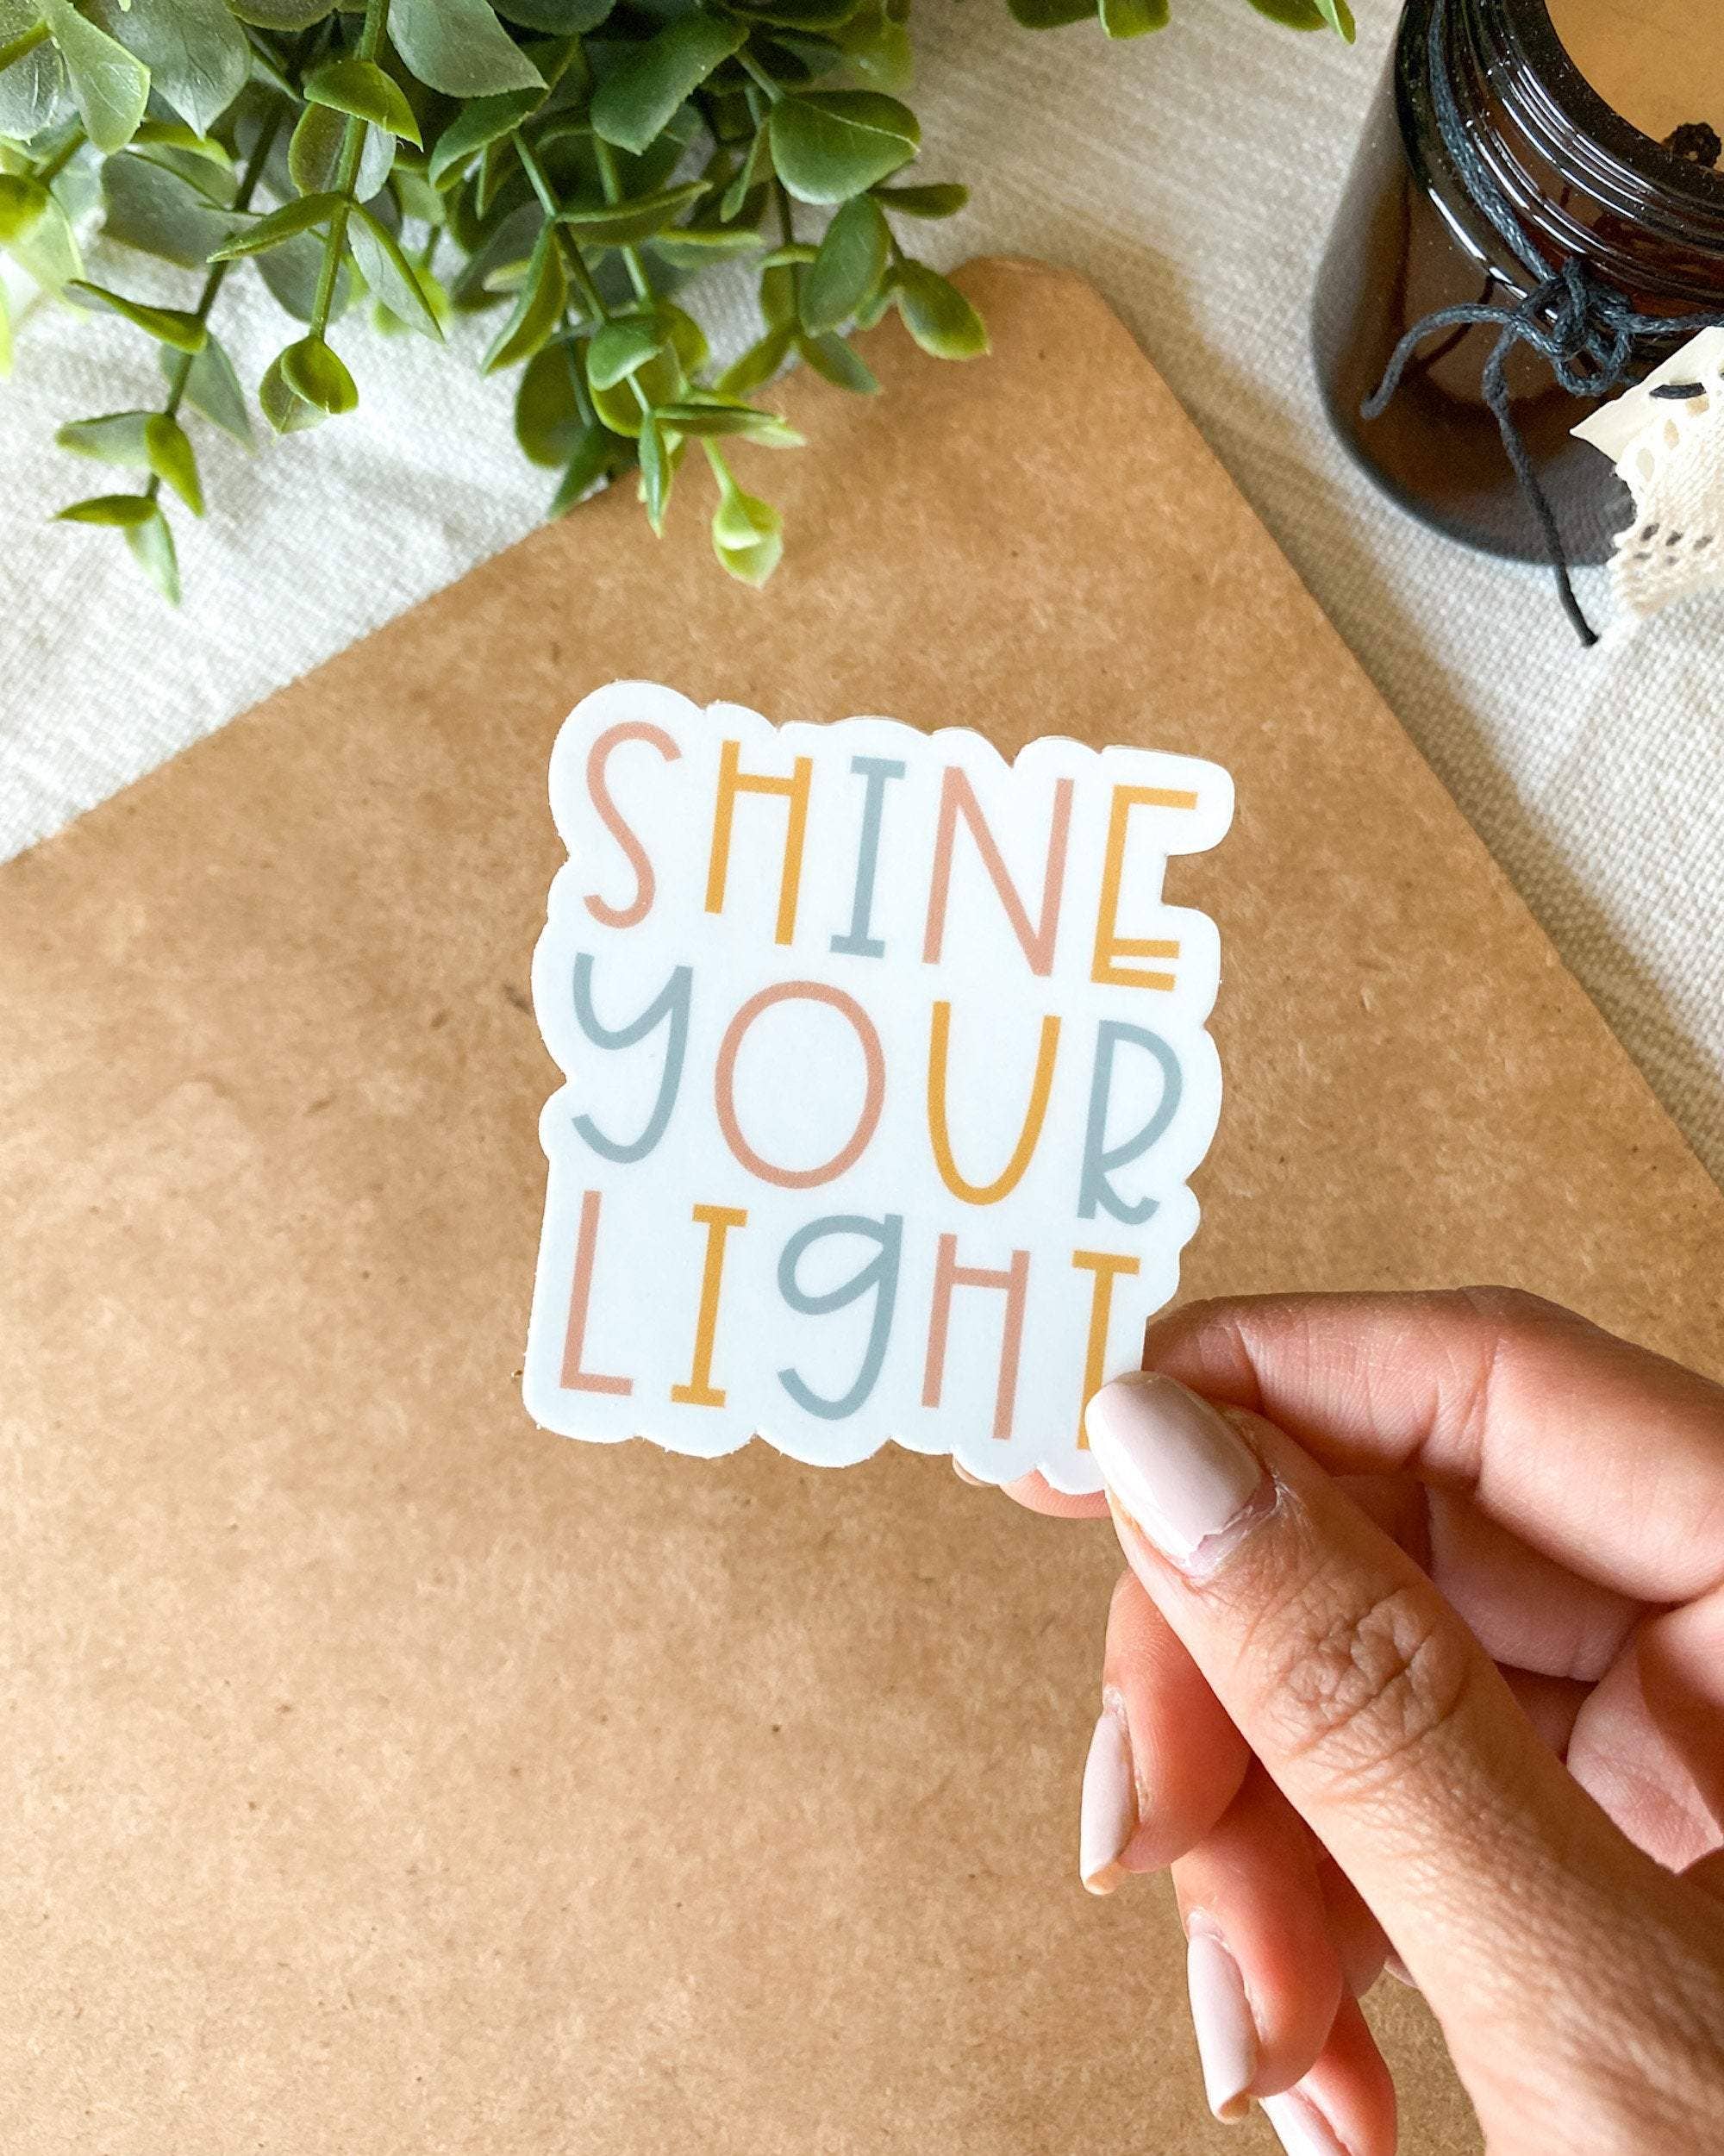 SHINE
YOUR
LIgHT